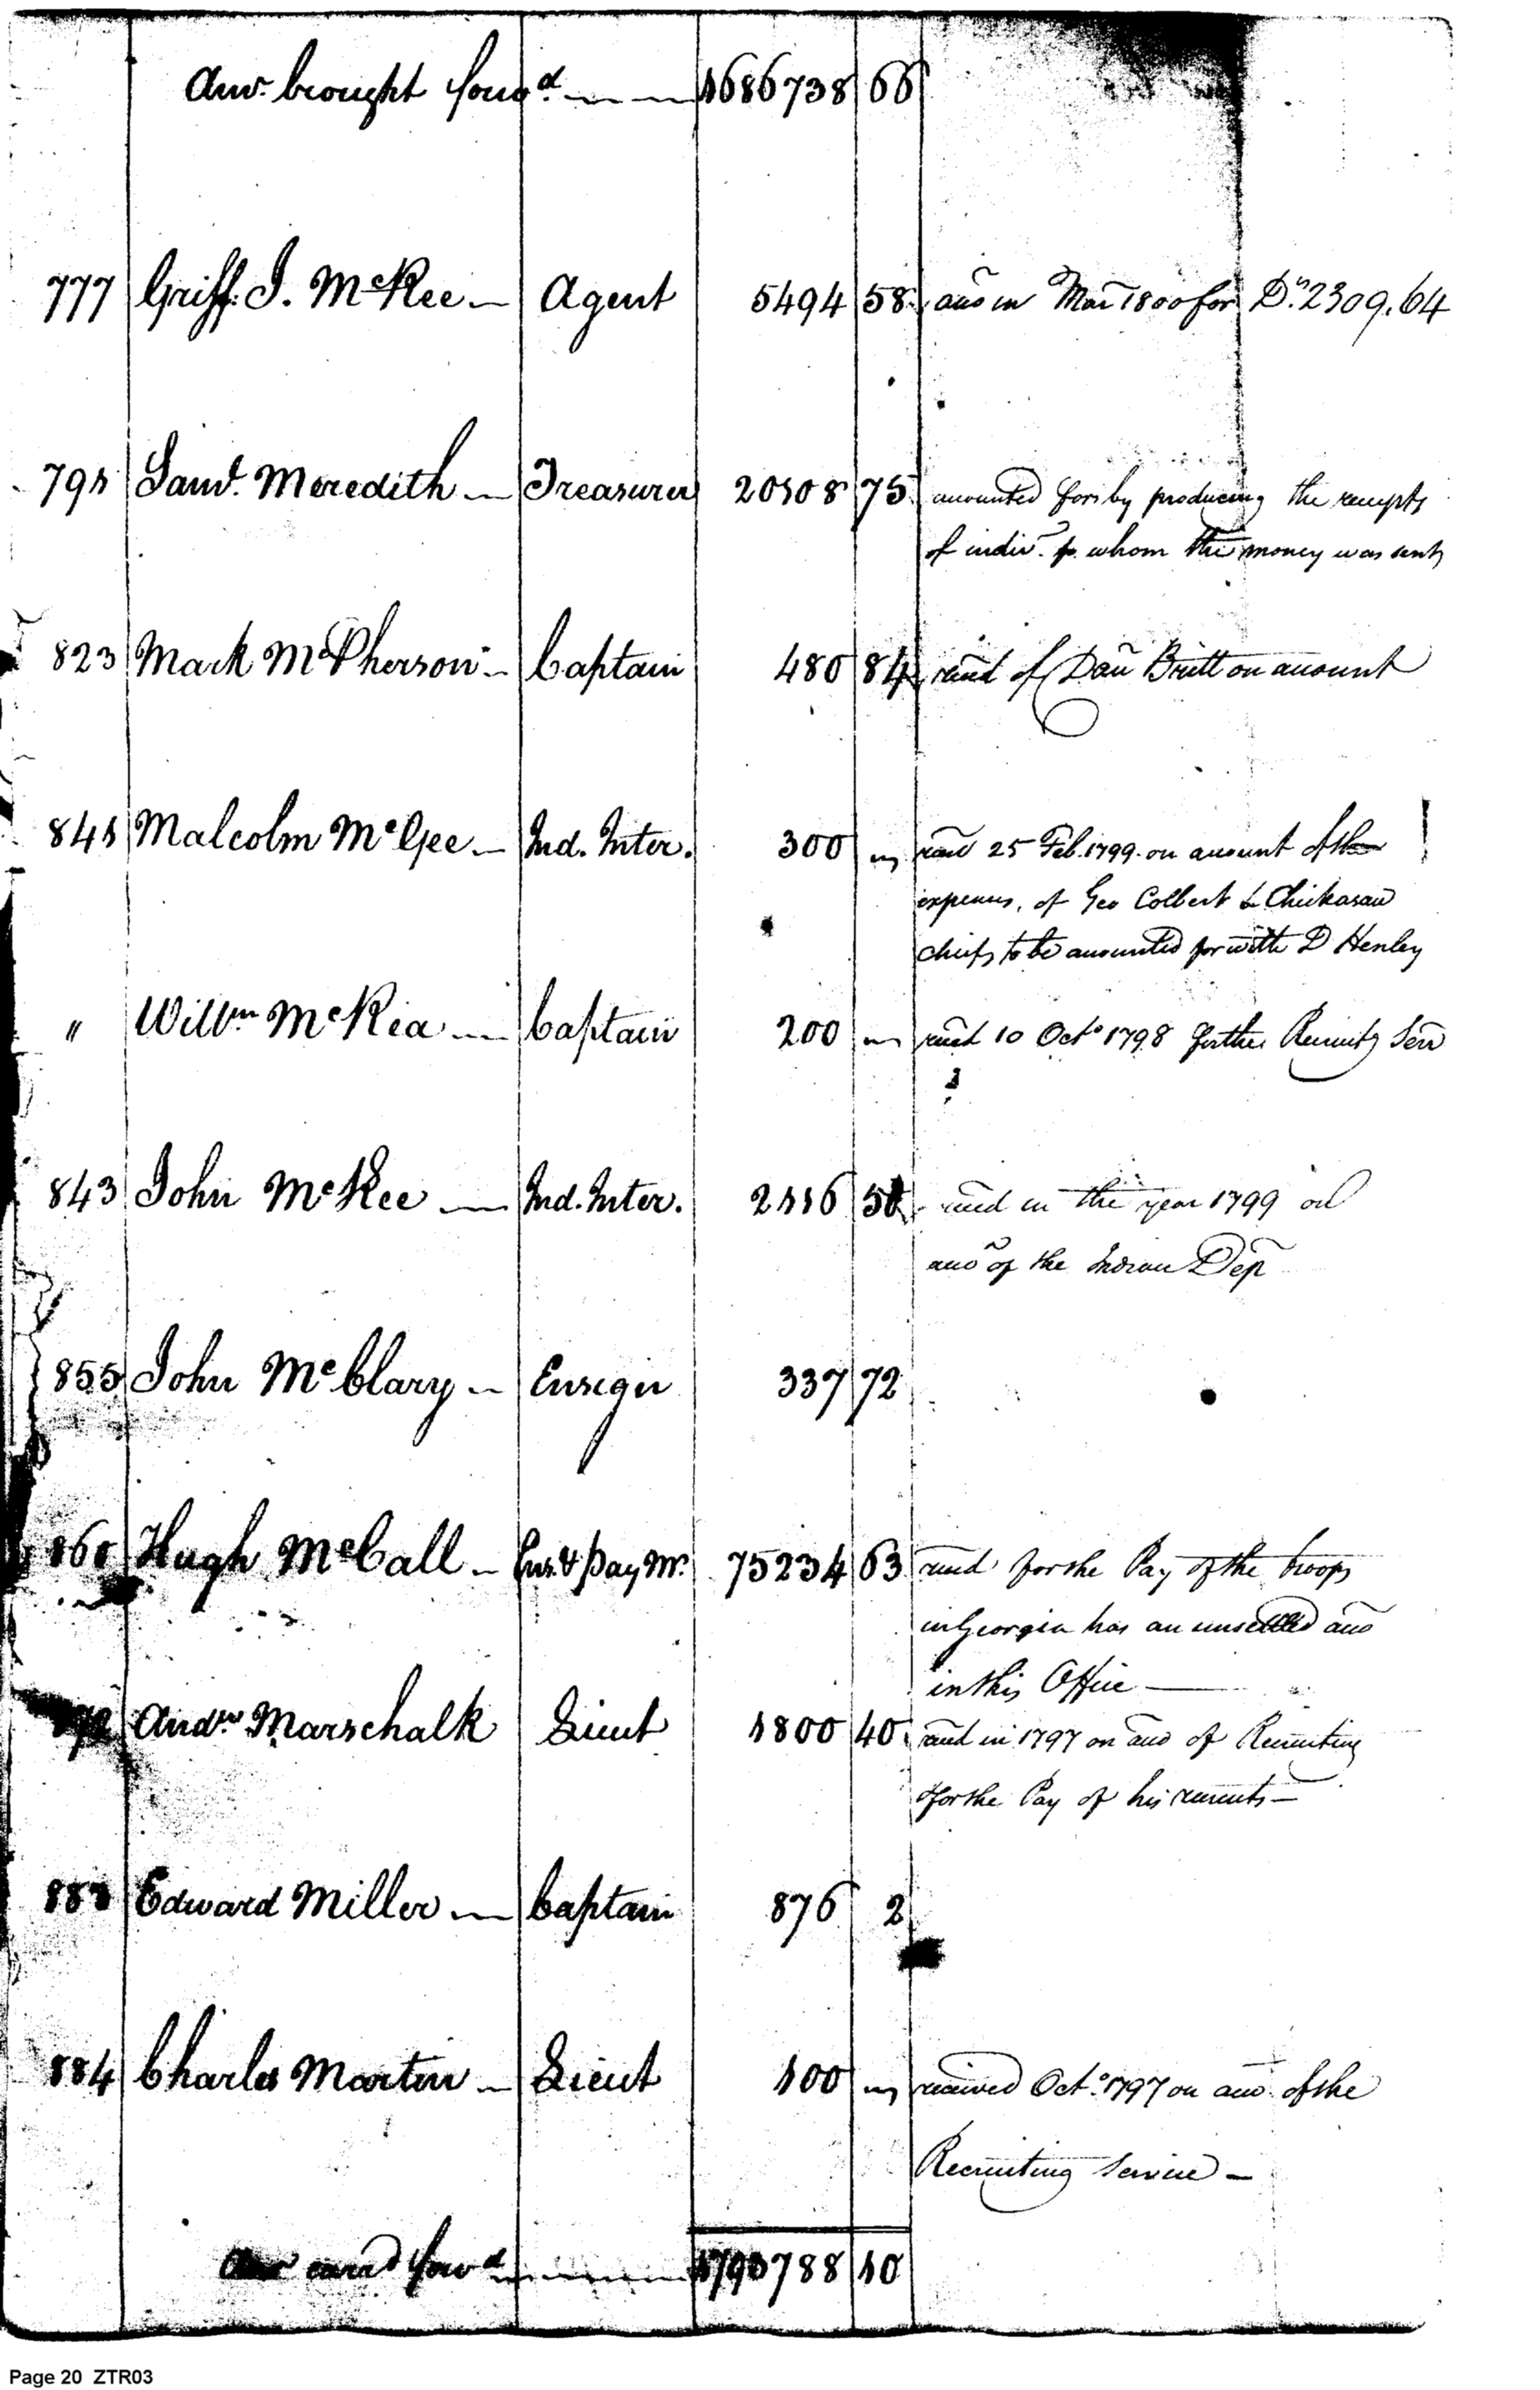 Amt. brought forwd 1686738 66
777 Griff. J. McKee Agent 5494 58 acco in Mar 1800 for Drs. 2309.64
791 Saml. Meredith Treasurer 20108 75 accounted for by producing the receipts
of indivs. to whom the money was sent
823 Mark McPherson Captain 480 84 recd of Danl Britt on account
841 Malcolm McGee Ind. Inter. 300 " recd 25 Feb. 1799 on account of the
expences, of Geo Colbert & Chickasaw
chiefs to be accounted for with D Henley
" Willm McRea Captain 200 " recd 10 Octo 1798 for the Recruitg Serv
843 John McKee Ind. Inter. 2116 recd in the year 1799 on
acco of the Indian Dep
855 John McClary Ensign 337 72
Hugh McCall Ens. & Pay Mr. 75234 63 recd for the Pay of the troops
in Georgia has an unsettled acco
in this Office
Andw Marschalk Lieut 1800 40 recd in 1797 on acco of Recruiting
& for the Pay of his recruits
883 Edward Miller Captain 876 2
884 Charles Martin Lieut 100 " received Octo. 1797 on acco of the
Recruiting Service
Amt carrd forwd 1793788 10
Page 20 ZTR03